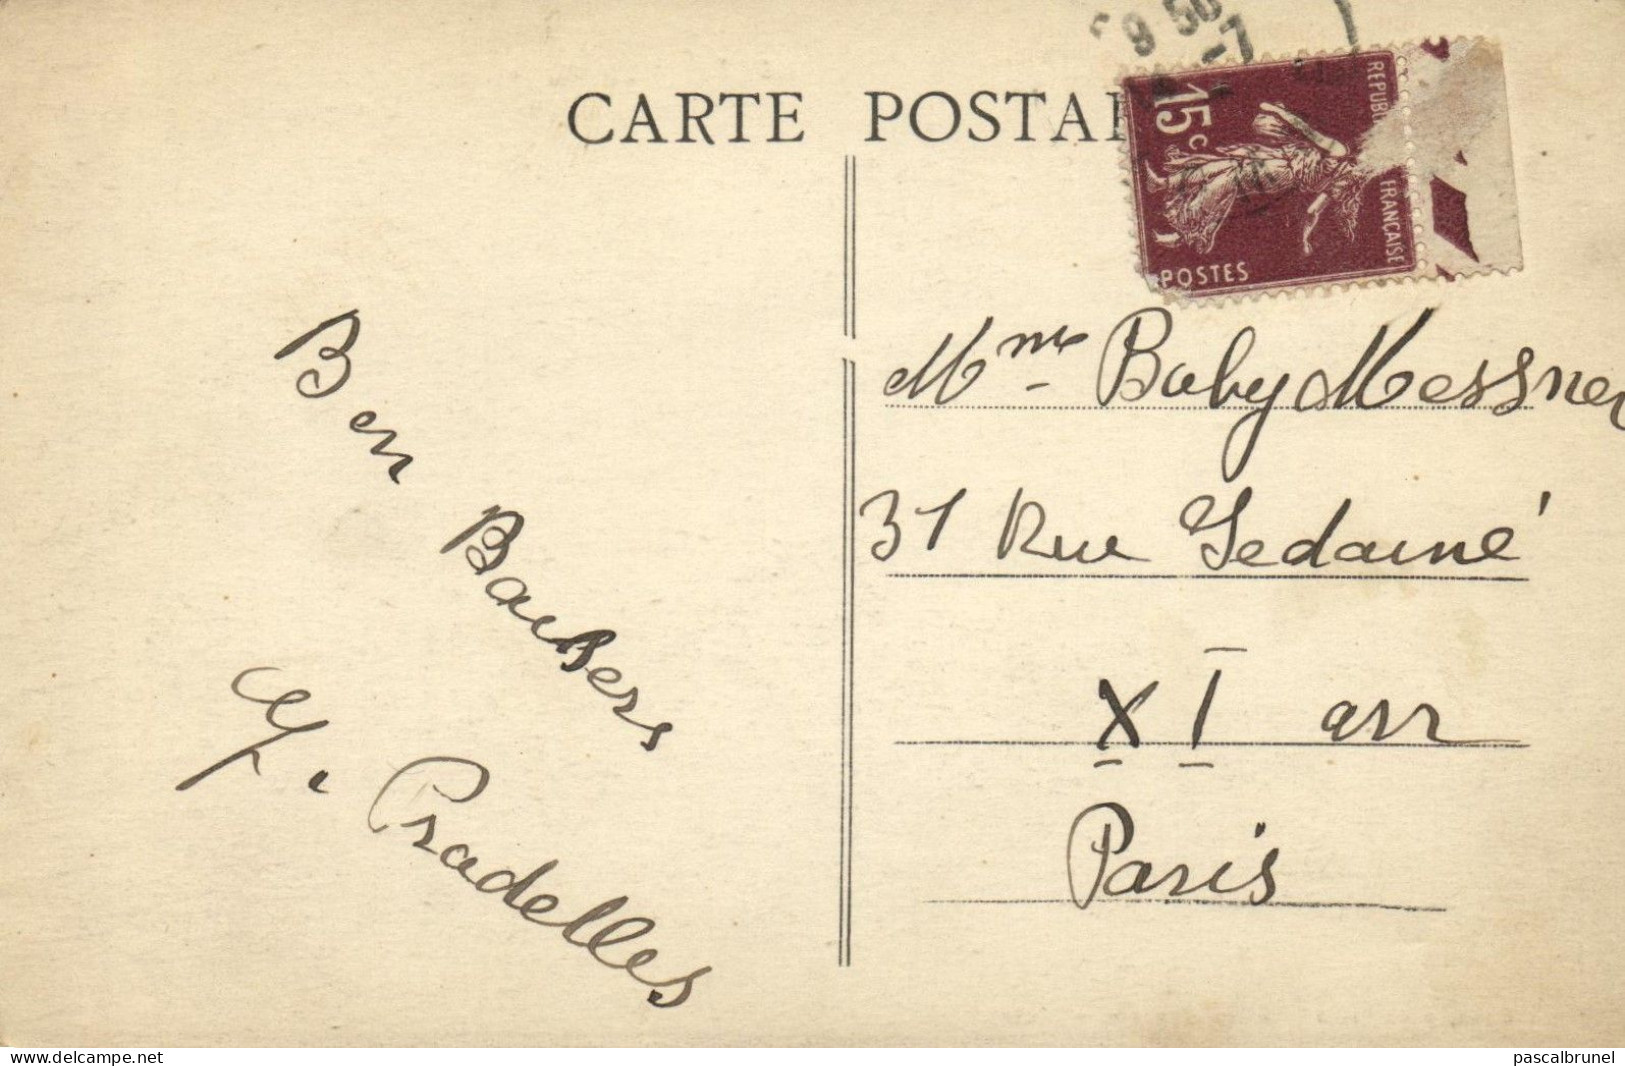 CARTE POSTA
15c
REPUB
FRANÇAISE
POSTES
Ben Baisers
Y. Pradelles
Mme Baby Messner
31 Rue Sedainé
XI arr
Paris
www.delcampe.net
pascalbrunel